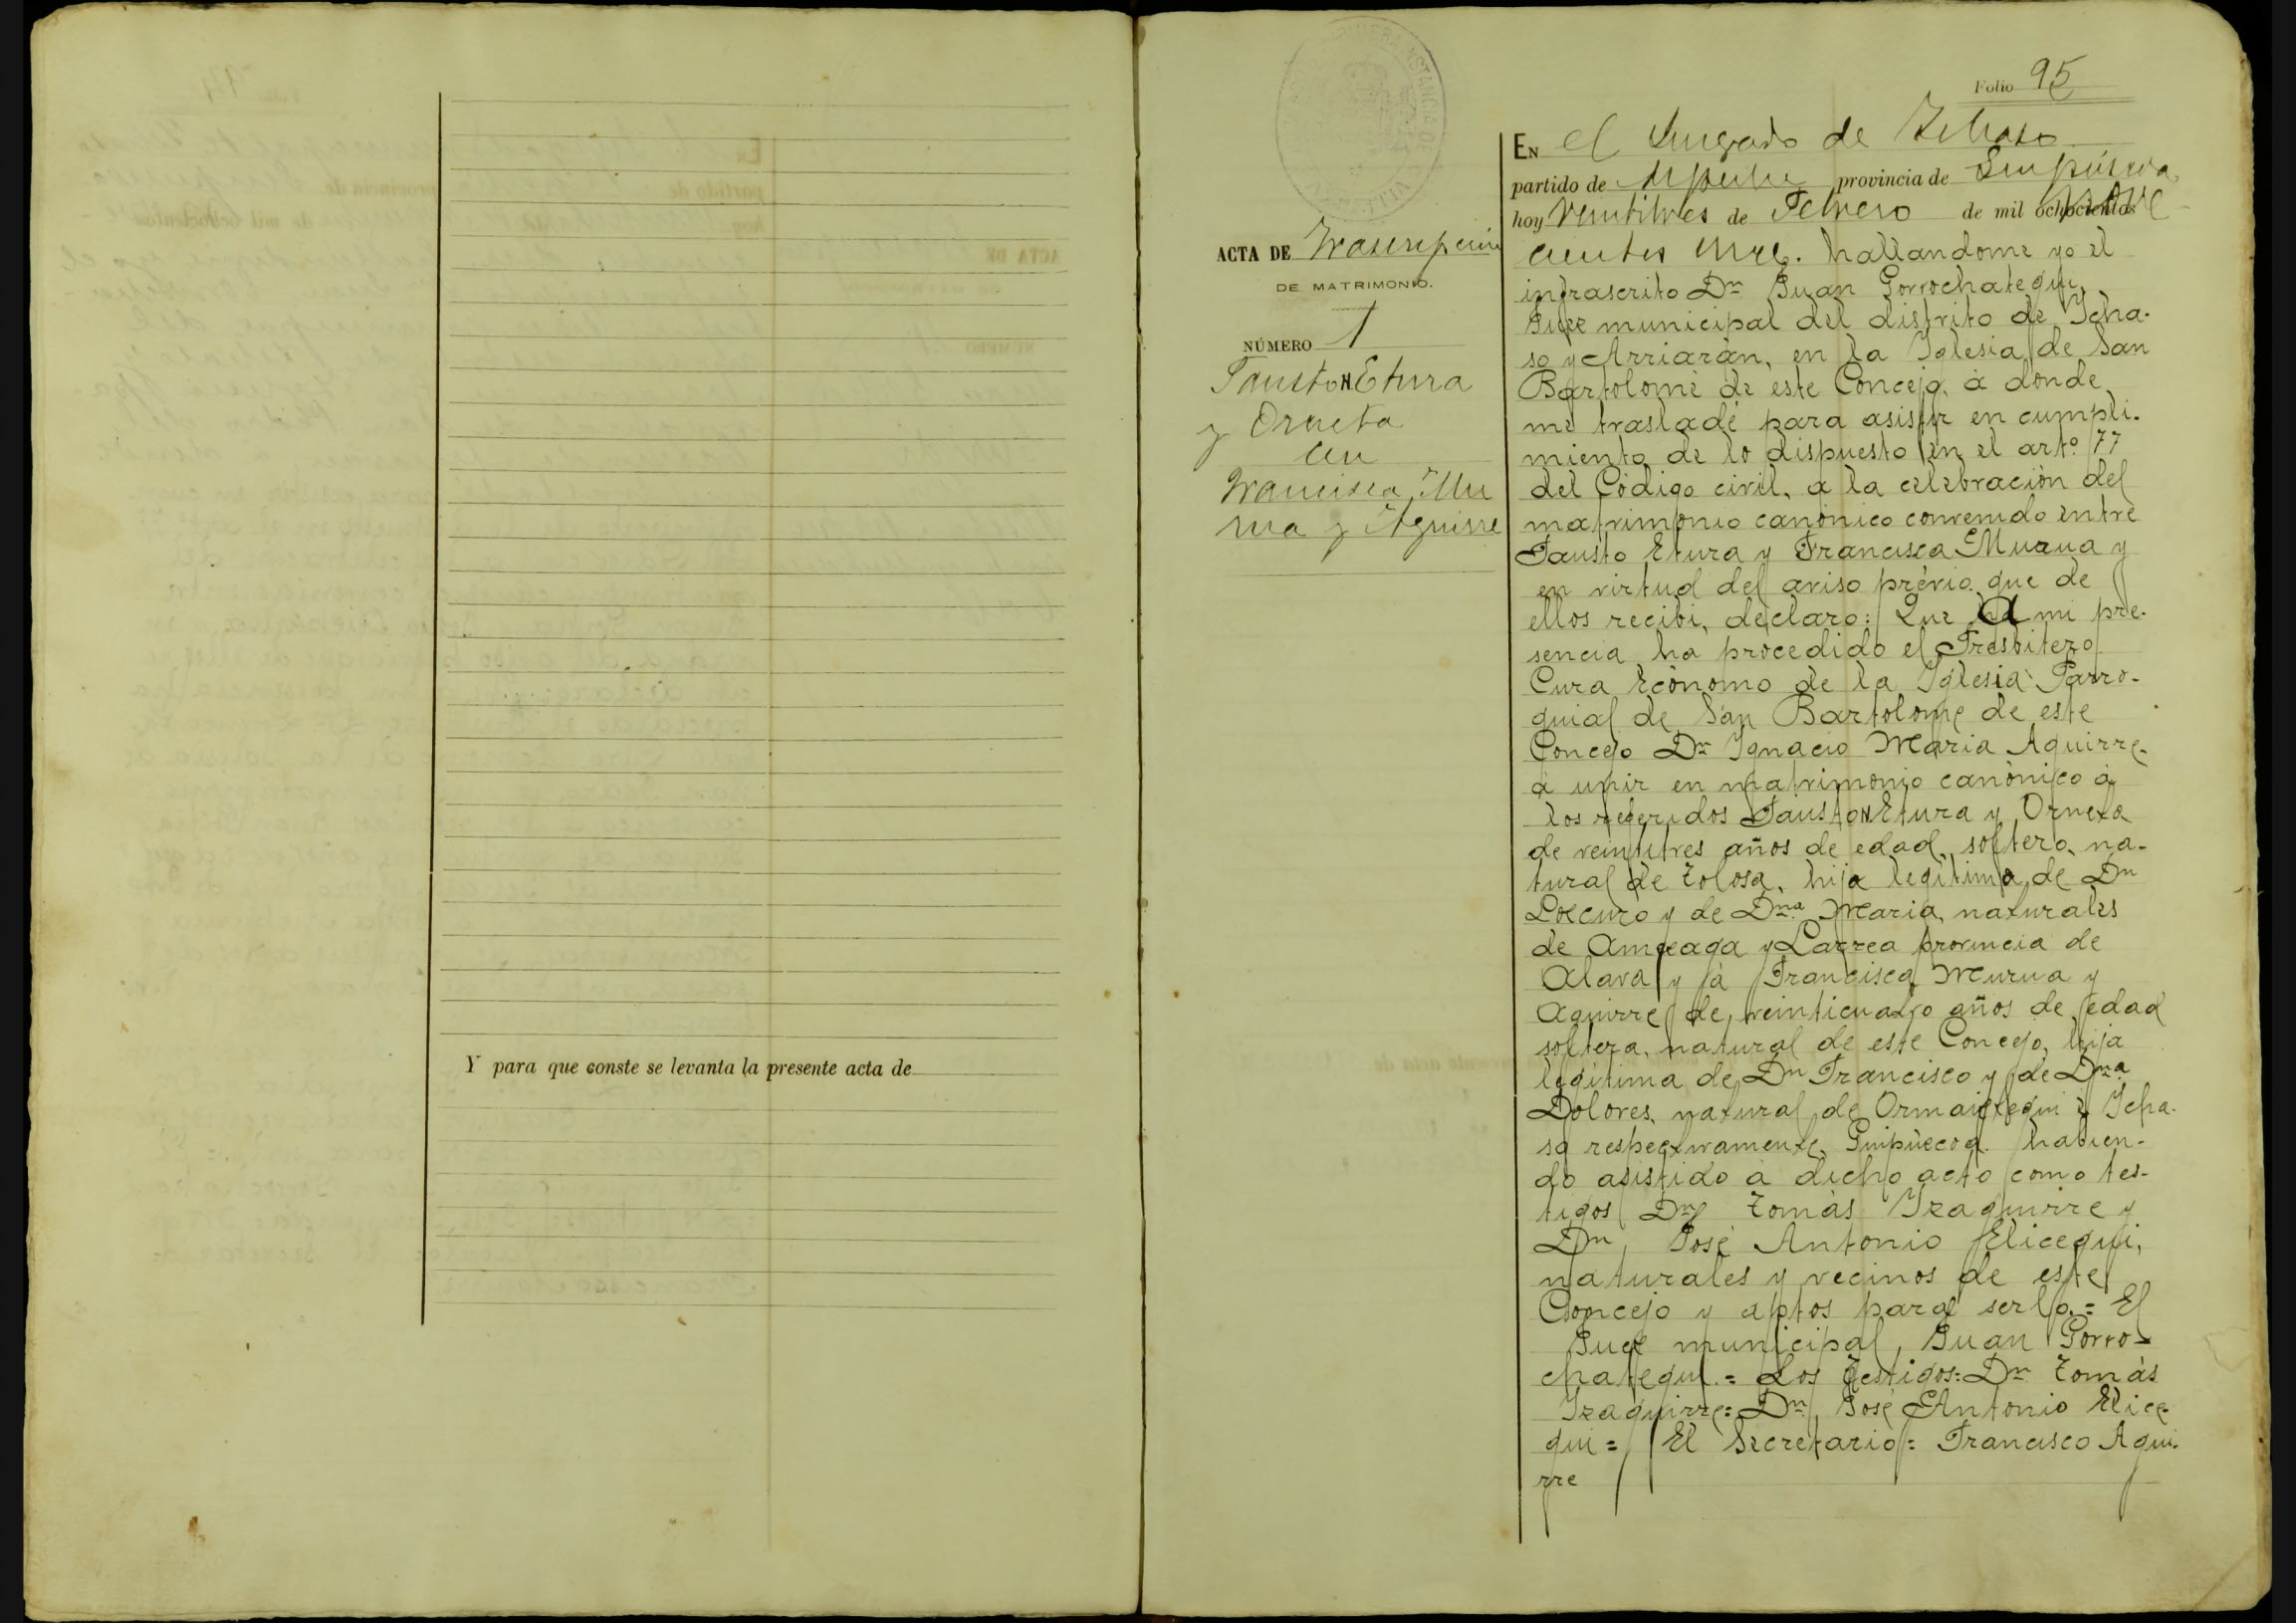 Y para que conste se levanta la presente acta de
Folio 95
EN el Jusgado de Ichaso
partido de Aspeitia provincia de Guipúscoa
hoy veintitres de Febrero de mil ochocientos nove
cientos once. hallandome yo el
infrascrito Dn Juan Gorrochategui,
Juez municipal del distrito de Icha-
so y Arriarán, en la Iglesia de San
Bartolomé de este Concejo, á donde
me trasladé para asistir en cumpli-
miento de lo dispuesto en el arto. 77
del Código civil, a la celebración del
matrimonio canónico convenido entre
Fausto Etura y Francisca Murua y
en virtud del aviso prévio que de
ellos recibi, declaro: Que a mi pre-
sencia ha procedido el Presbitero
Cura Ecónomo de la Iglesia Parro-
quial de San Bartolome de este
Concejo Dn Ignacio Maria Aguirre
á unir en matrimonio canónico á
los referidos Fausto Etura y Orueta
de veintitres años de edad, soltero, na-
tural de Tolosa, hijo legitimo de Dn
y de Dna Maria, naturales
de Amezaga y Larrea provincia de
Alava y á Francisca Murua y
Aguirre de veinticuatro años de edad
soltera, natural de este Concejo, hija
legitima de Dn Francisco y de Dna
Dolores, natural de Ormaiztegui é Icha-
so respectivamente, Guipúzcoa habien-
do asistido á dicho acto como tes-
tigos Dn Tomás Izaguirre y
Dn José Antonio Elicegui,
naturales y vecinos de este
Concejo y aptos para serlo.= El
Juez municipal, Juan Gorro-
chategui.= Los Testigos: Dn Tomás
Izaguirre= Dn José Antonio Elice-
gui= El Secretario= Francisco Agui-
rre
ACTA DE Trascripción
DE MATRIMONIO.
NÚMERO 1
Fausto Etura
y Orueta
con
Francisca Mu
rua y Aguirre